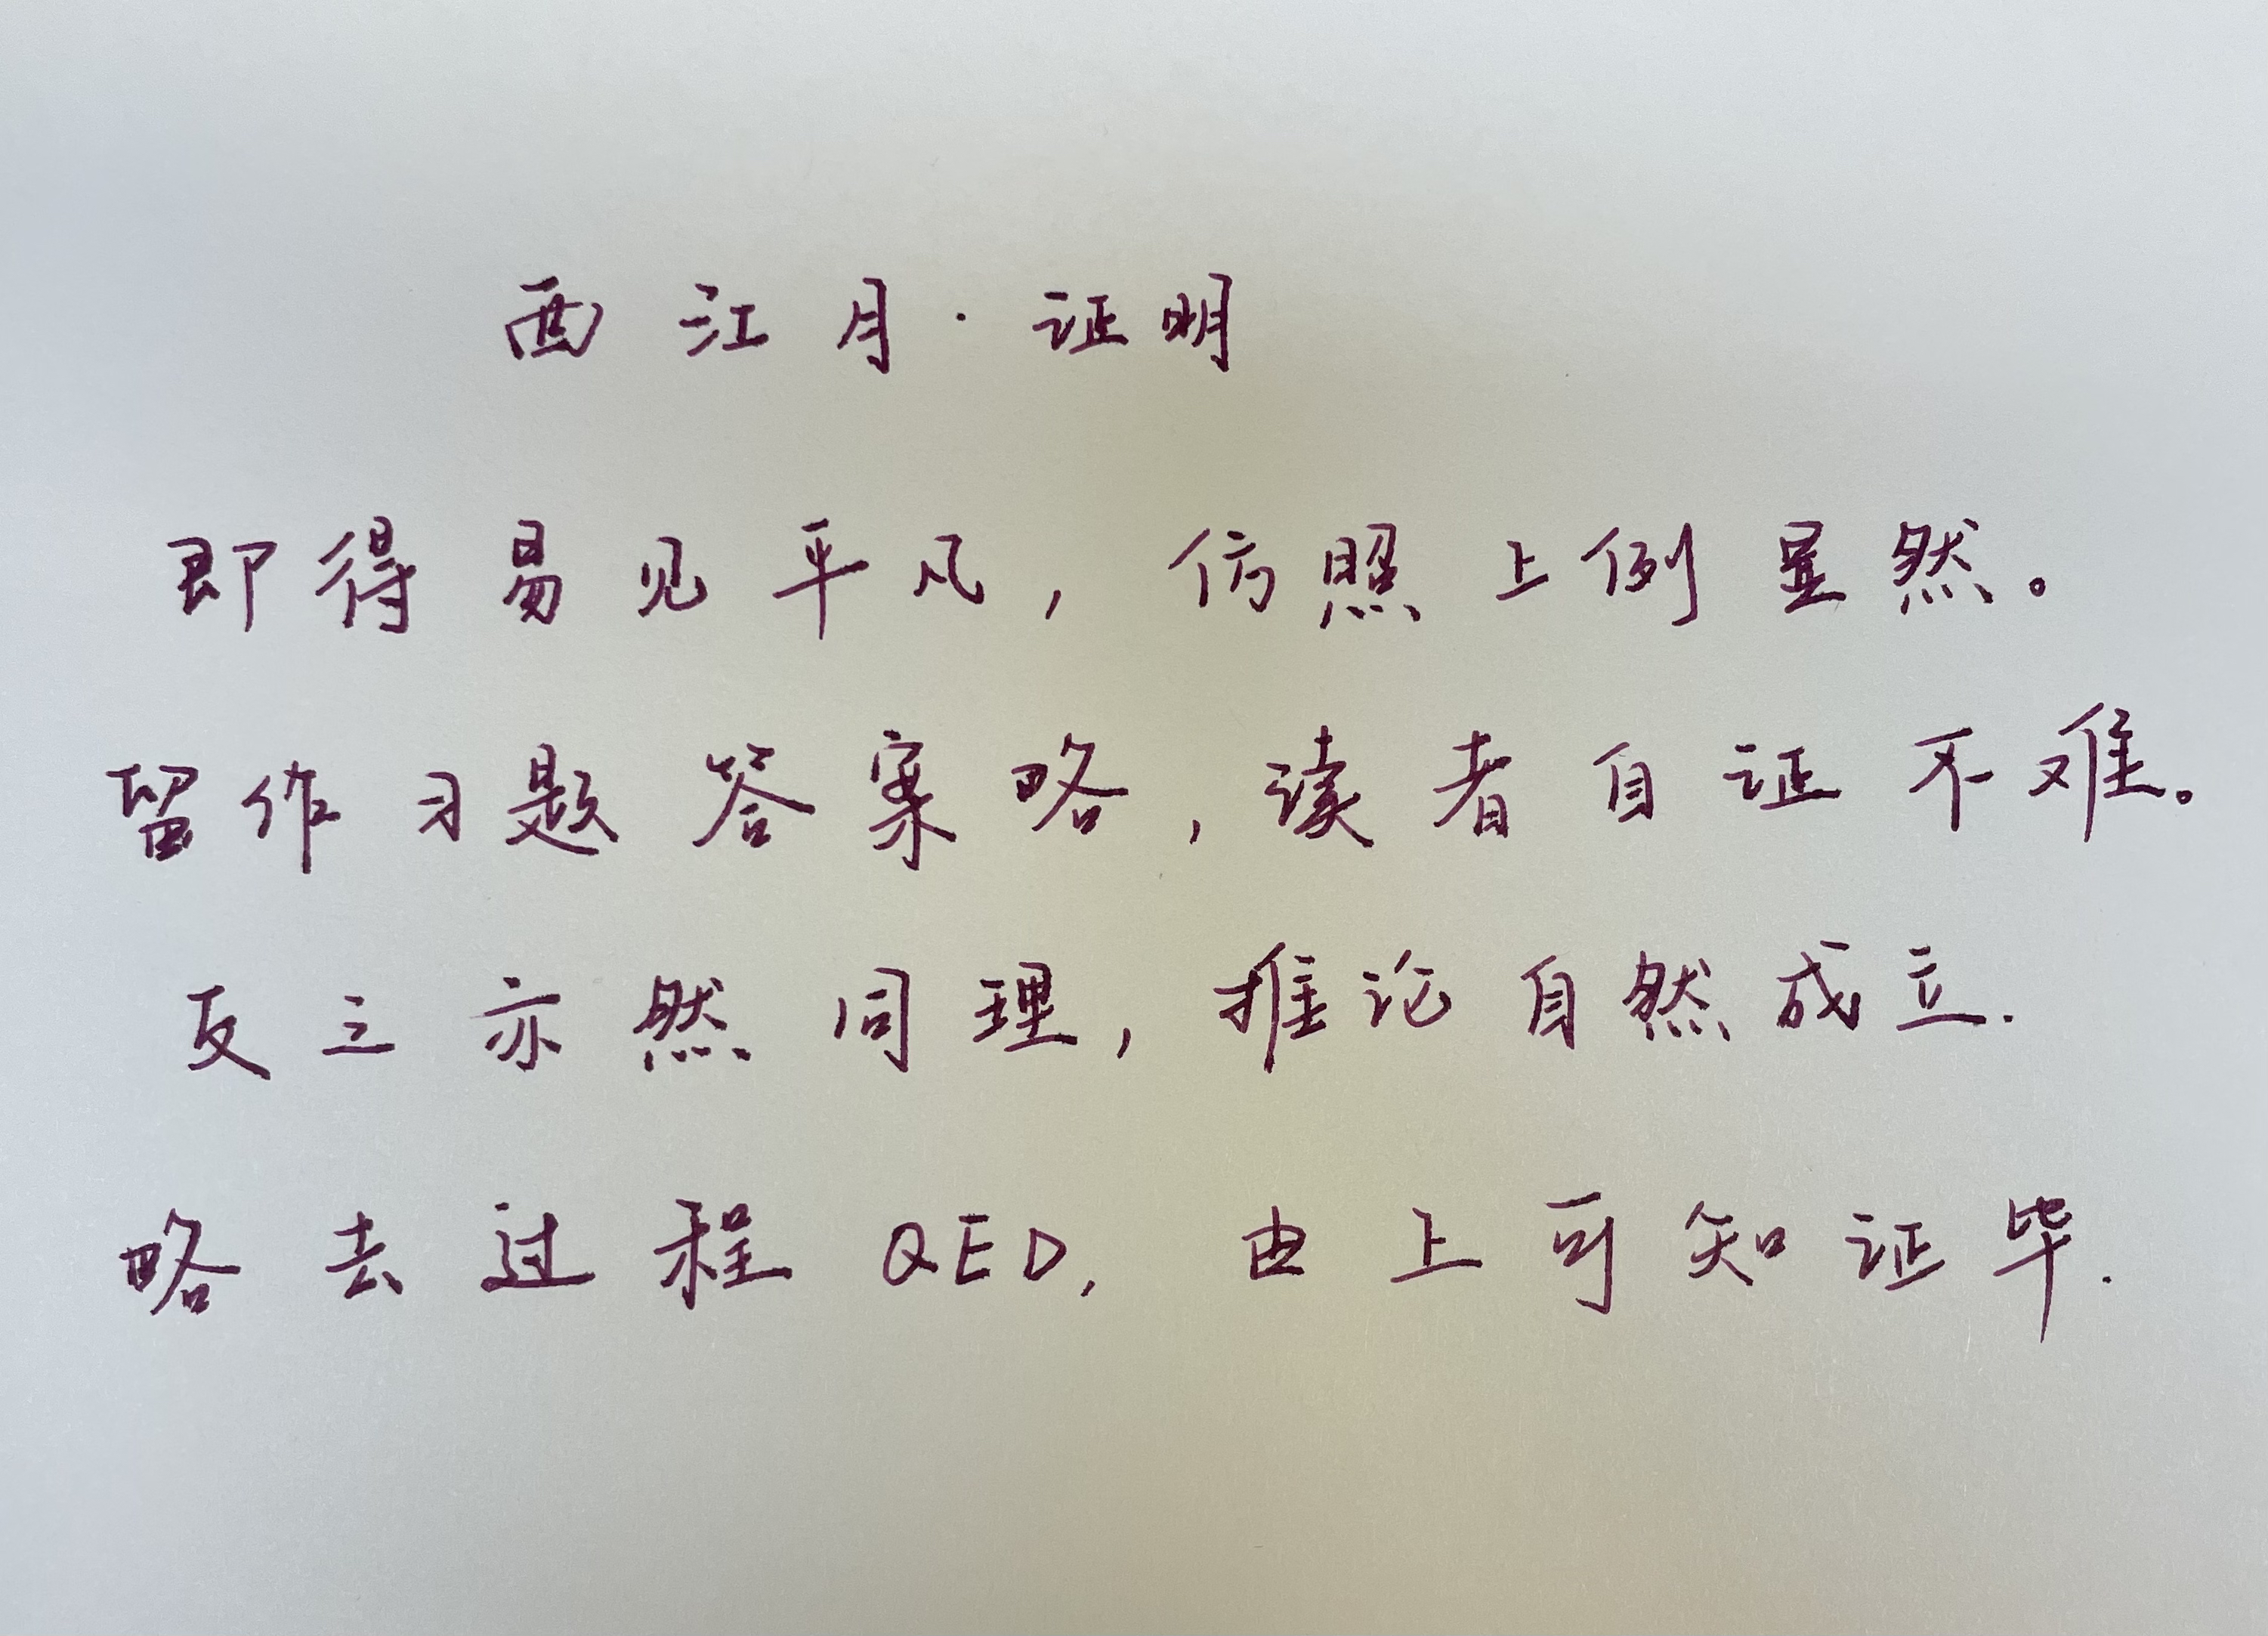 西江月·证明
即得易见平凡，仿照上例显然。
留作习题答案略，读者自证不难。
反之亦然同理，推论自然成立.
略去过程QED，由上可知证毕.